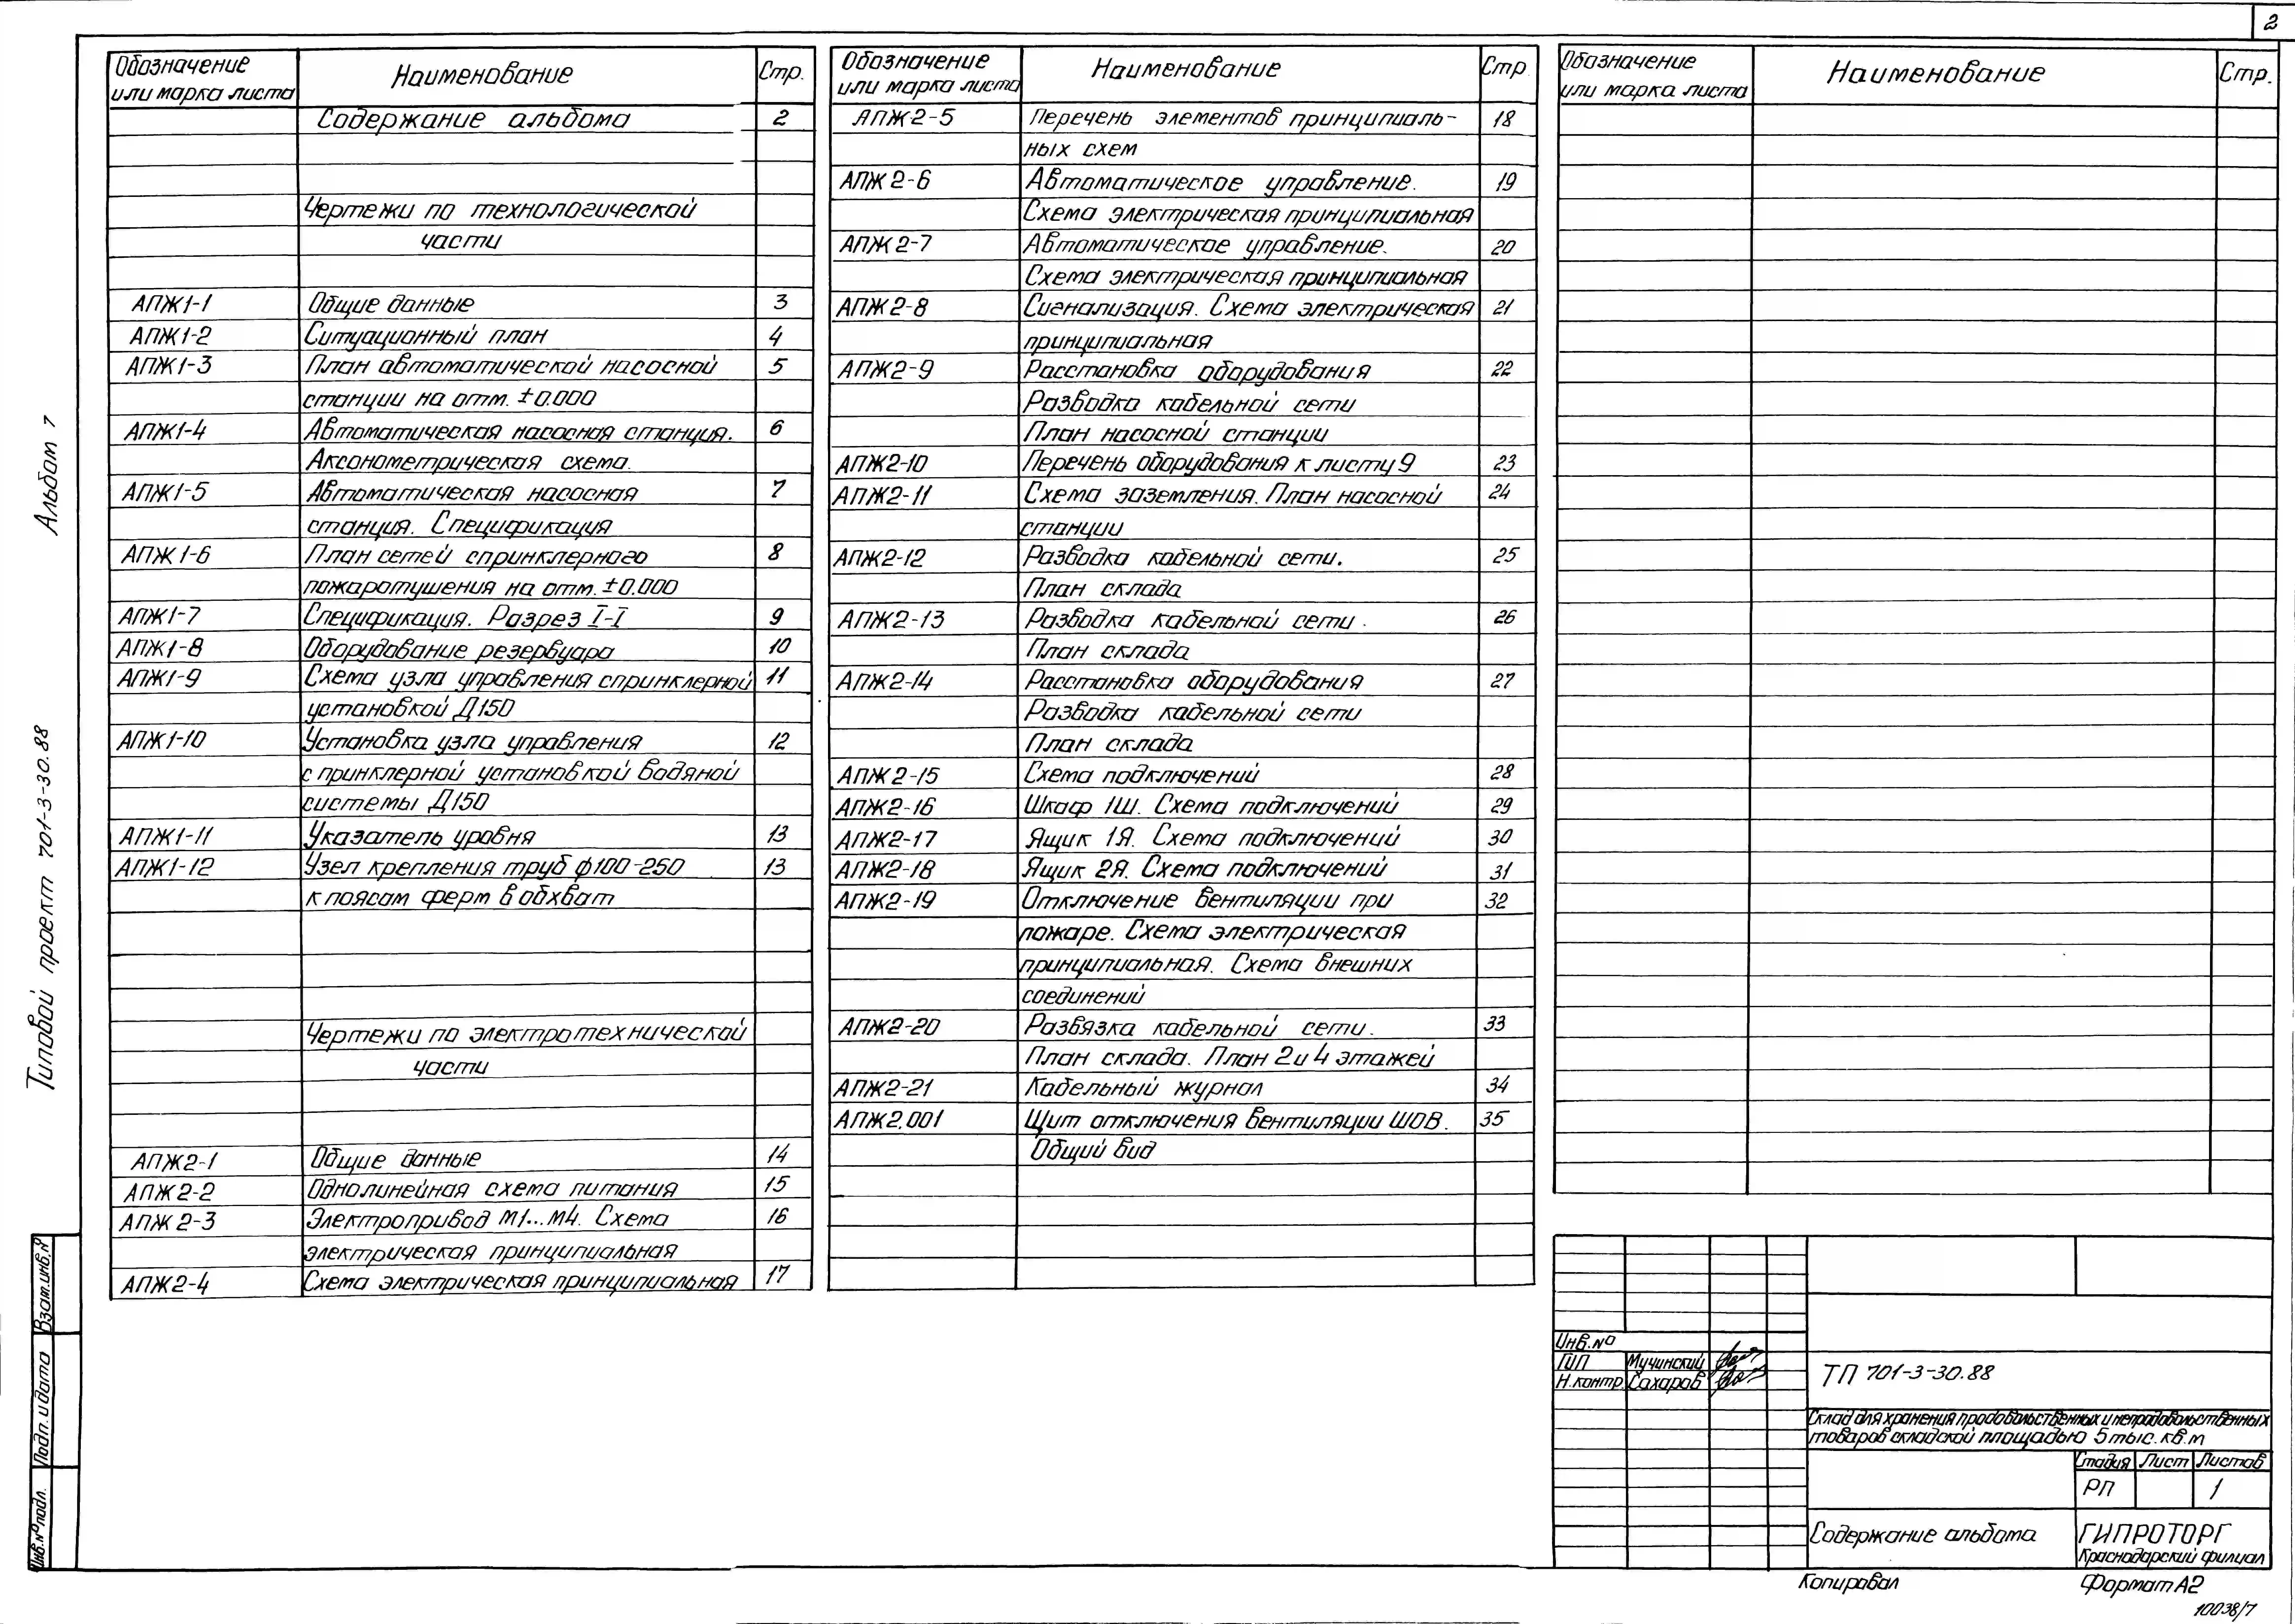 2
Обозначение или марка листа Наименование Стр.
Содержание альбома 2
Чертежи по технологической
части
АПЖ1-1 Общие данные 3
АПЖ1-2 Ситуационный план 4
АПЖ1-3 План автоматической насосной 5
станции на отм. ±0.000
АПЖ1-4 Автоматическая насосная станция. 6
Аксонометрическая схема.
АПЖ1-5 Автоматическая насосная 7
станция. Спецификация
АПЖ1-6 План сетей спринклерного 8
пожаротушения на отм. ±0.000
АПЖ1-7 Спецификация. Разрез I-I 9
АПЖ1-8 Оборудование резервуара 10
АПЖ1-9 Схема узла управления спринклерной 11
установкой Д150
АПЖ1-10 Установка узла управления 12
спринклерной установкой водяной
системы Д150
АПЖ1-11 Указатель уровня 13
АПЖ1-12 Узел крепления труб ф100-250 13
к поясам ферм в обхват
Чертежи по электротехнической
части
АПЖ2-1 Общие данные 14
АПЖ2-2 Однолинейная схема питания 15
АПЖ2-3 Электропривод М1...М4. Схема 16
электрическая принципиальная
АПЖ2-4 Схема электрическая принципиальная 17
Обозначение или марка листа Наименование Стр
АПЖ2-5 Перечень элементов принципиаль- 18
ных схем
АПЖ2-6 Автоматическое управление. 19
Схема электрическая принципиальная
АПЖ2-7 Автоматическое управление. 20
Схема электрическая принципиальная
АПЖ2-8 Сигнализация. Схема электрическая 21
принципиальная
АПЖ2-9 Расстановка оборудования 22
Разводка кабельной сети
План насосной станции
АПЖ2-10 Перечень оборудования к листу 9 23
АПЖ2-11 Схема заземления. План насосной 24
станции
АПЖ2-12 Разводка кабельной сети. 25
План склада
АПЖ2-13 Разводка кабельной сети. 26
План склада
АПЖ2-14 Расстановка оборудования 27
Разводка кабельной сети
План склада
АПЖ2-15 Схема подключений 28
АПЖ2-16 Шкаф 1Ш. Схема подключений 29
АПЖ2-17 Ящик 1Я. Схема подключений 30
АПЖ2-18 Ящик 2Я. Схема подключений 31
АПЖ2-19 Отключение вентиляции при 32
пожаре. Схема электрическая
принципиальная. Схема внешних
соединений
АПЖ2-20 Развязка кабельной сети. 33
План склада. План 2 и 4 этажей
АПЖ2-21 Кабельный журнал 34
АПЖ2.001 Щит отключения вентиляции ШОВ. 35
Общий вид
Обозначение или марка листа Наименование Стр.
Типовой проект 701-3-30.88 Альбом 7
Взам.инв.№
Подп. и дата
Инв.№подл.
Инв.№
ГИП Мучинский
Н.контр. Сахаров
ТП 701-3-30.88
Склад для хранения продовольственных и непродовольственных
товаров складской площадью 5 тыс. кв.м
Стадия Лист Листов
РП 1
Содержание альбома
ГИПРОТОРГ
Краснодарский филиал
Копировал Формат А2
10038/7